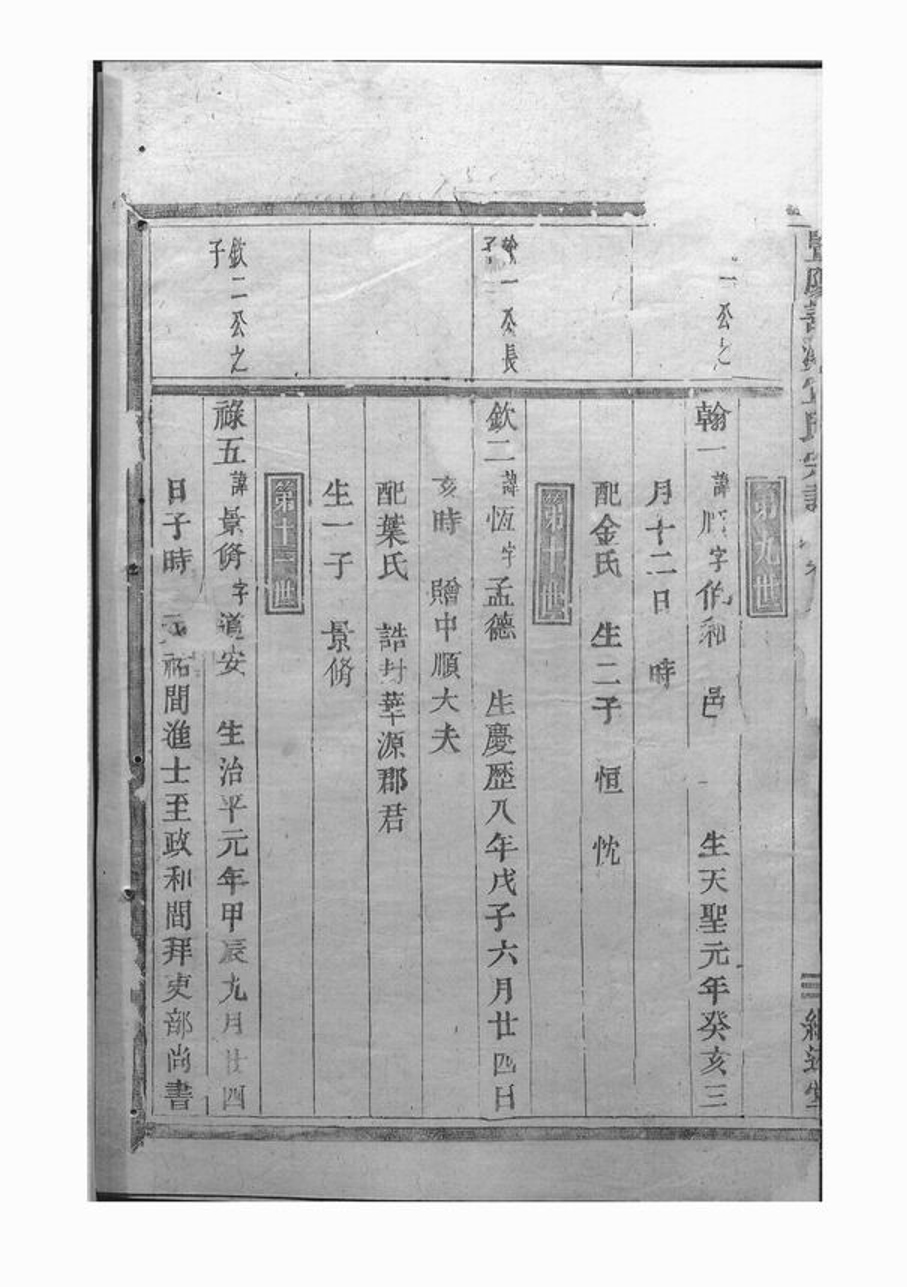 宗譜
三
第九世
一公之
翰一諱順字伯和 邑 生天聖元年癸亥三
月十二日 時
配金氏 生二子 恒 忱
第十世
翰一公長子
欽二諱恆字孟德 生慶歷八年戊子六月廿四日
亥時 贈中順大夫
配葉氏 誥封華源郡君
生一子 景脩
第十一世
欽二公之子
祿五諱景脩字道安 生治平元年甲辰九月廿四
日子時 元祐間進士至政和間拜吏部尚書